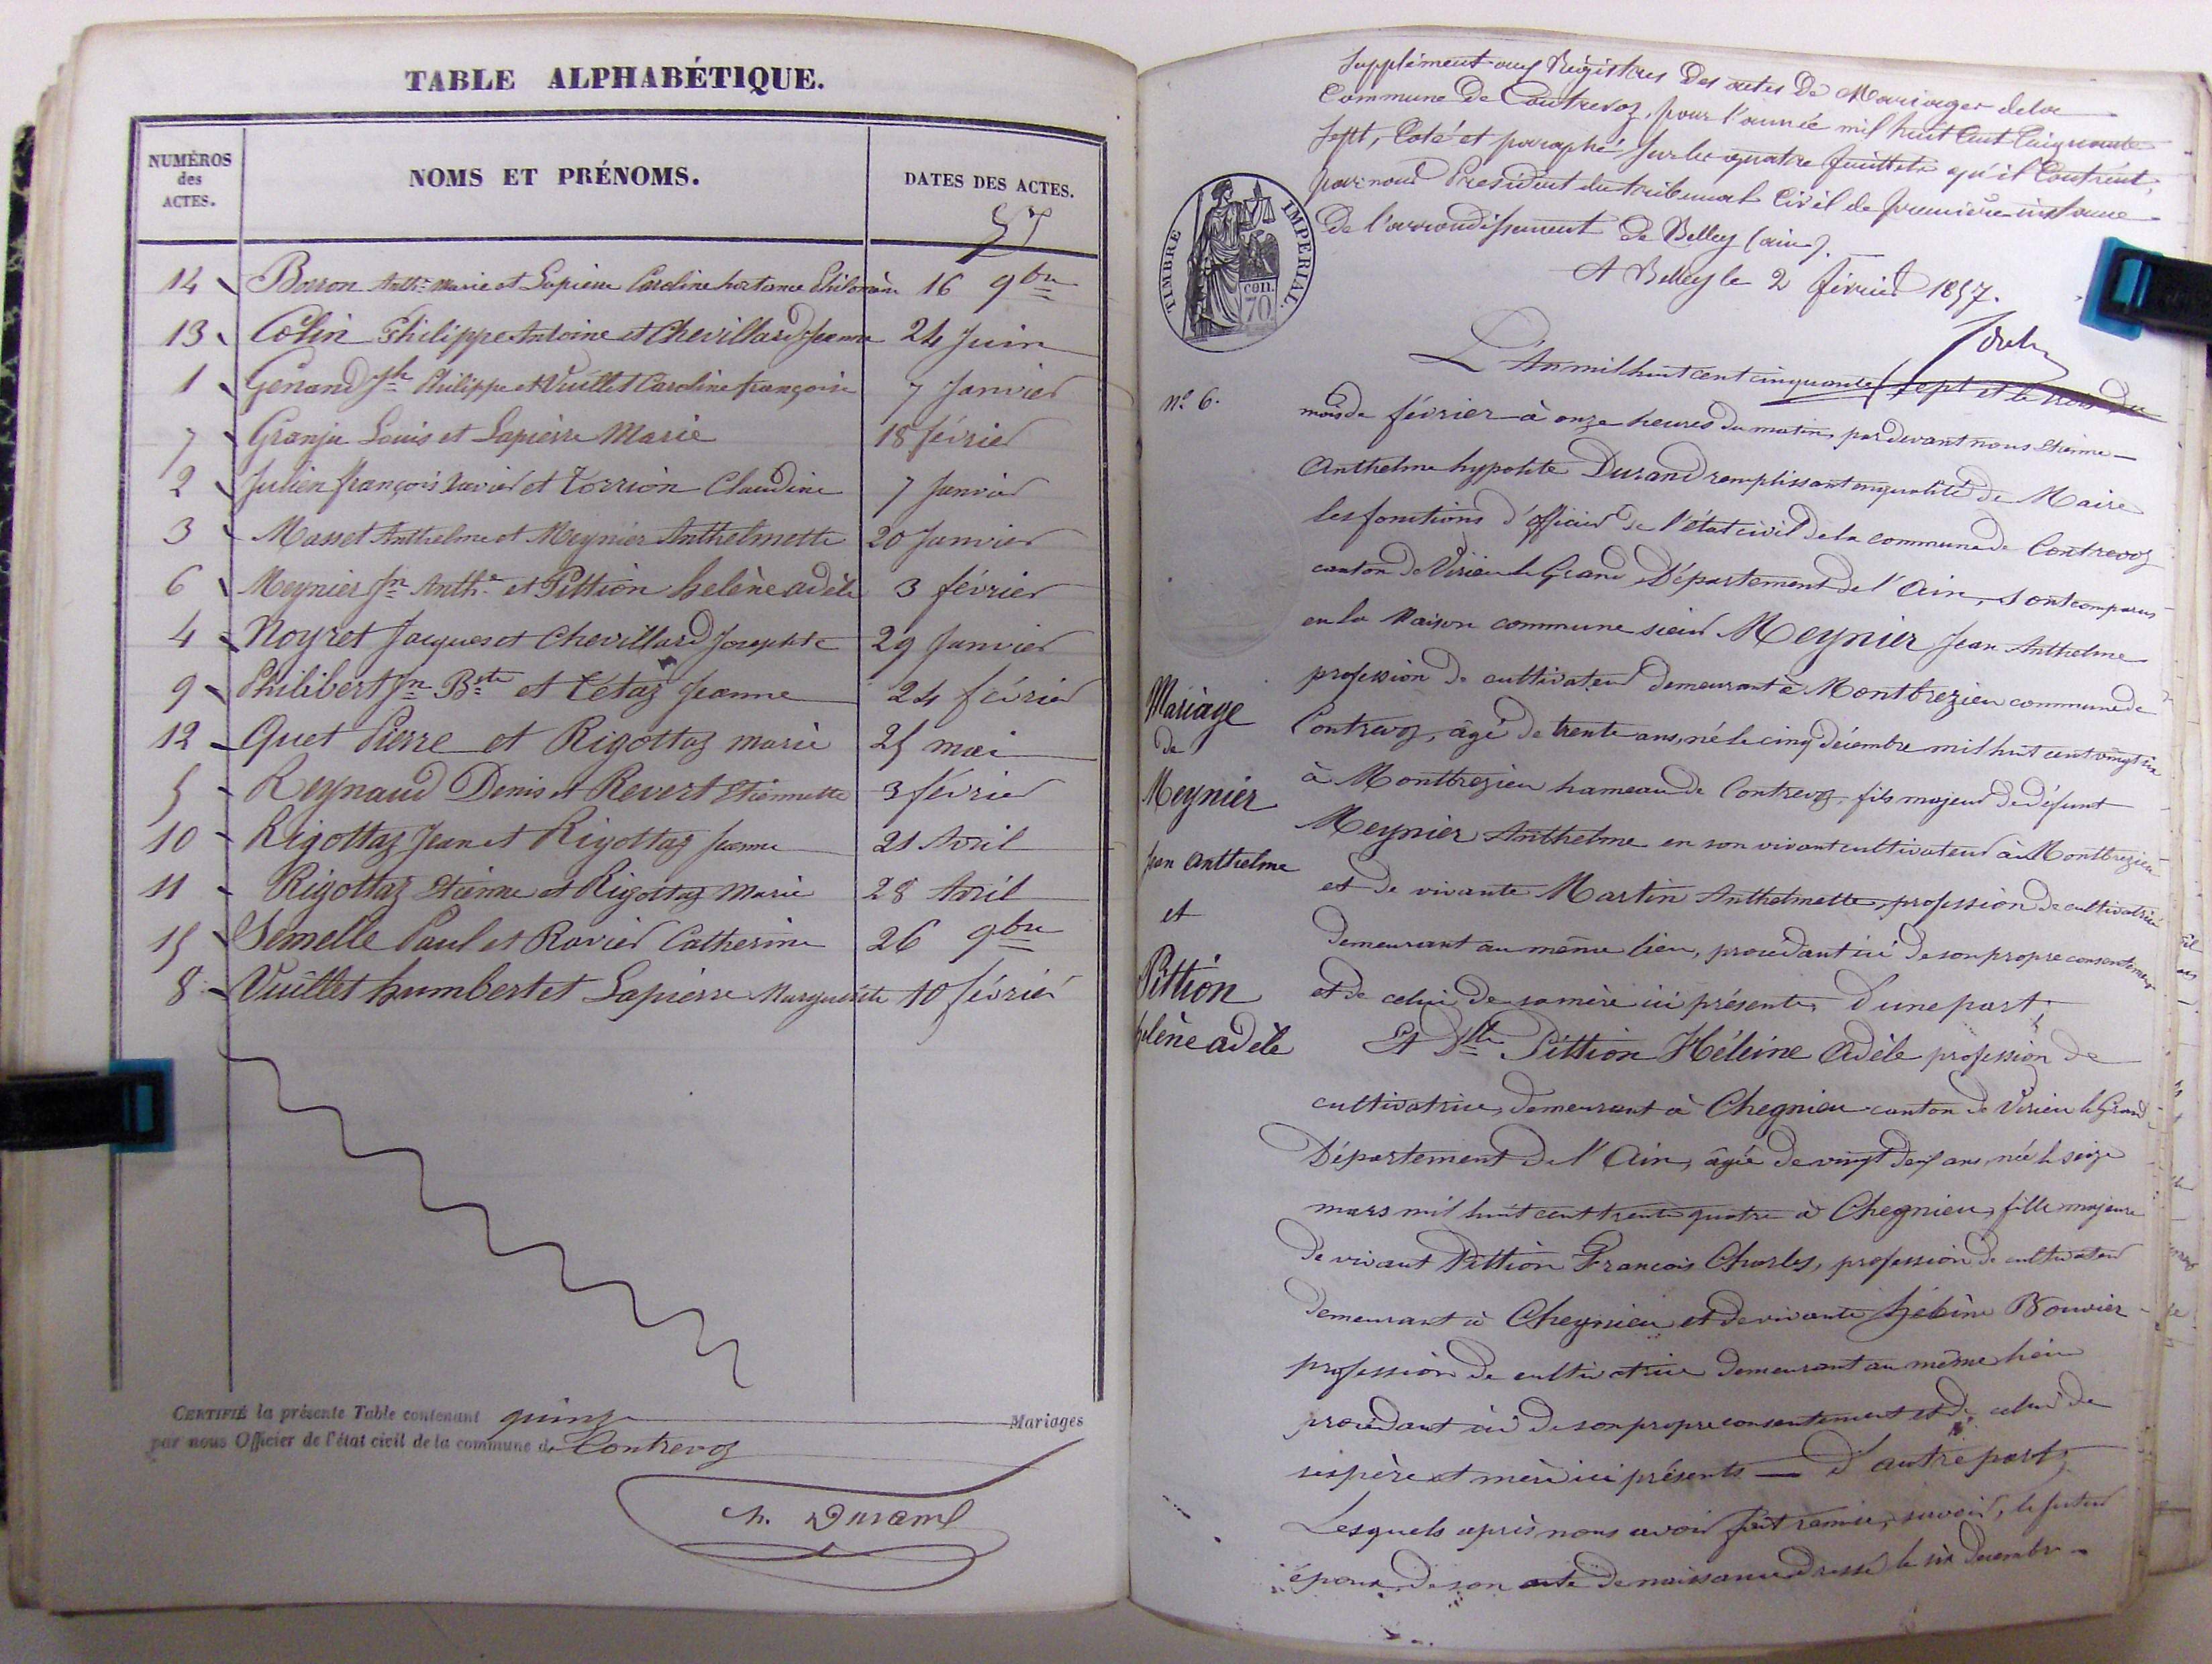 TABLE ALPHABÉTIQUE.
NUMÉROS
des
ACTES.
NOMS ET PRÉNOMS.
DATES DES ACTES.
57
14 Borron Anth.e Marie et Lapierre Caroline hortense 16 9bre
13 Colin Philippe Antoine et Chevillard Jeanne 24 Juin
1 Genand Jh Philippe et Vuillet Caroline françoise 7 Janvier
7 Granju Louis et Lapierre Marie 18 février
2 Julien françois Xavier et Torrion Claudine 7 Janvier
3 Masset Anthelme et Meynier Anthelmette 20 Janvier
6 Meynier Jn Anth.e et Pittion helène adèle 3 février
4 Noyret Jacques et Chevillard Josephte 29 Janvier
9 Philibert Jn Bte et Tétaz Jeanne 24 février
12 Quet Pierre et Rigottaz marie 25 mai
5 Reynaud Denis et Revert Etiennette 3 février
10 Rigottaz Jean et Rigottaz Jeanne 21 Avril
11 Rigottaz Etienne et Rigottaz Marie 28 Avril
15 Semelle Paul et Ravier Catherine 26 9bre
8 Vuillet humbert et Lapierre Marguerite 10 février
CERTIFIÉ la présente Table contenant quinze Mariages
par nous Officier de l'état civil de la commune de Contrevoz
h. Durand
Supplément aux Régistres Des actes De Mariages de la
Commune De Contrevoz, pour l'année mil huit Cent Cinquante
Sept, Coté et paraphé sur les quatre feuillets qu'il Contient,
par nous Président du tribunal Civil de première instance
de l'arrondissement de Belley (ain).
A Belley le 2 février 1857.
TIMBRE IMPERIAL.
70
L'An mil huit cent cinquante sept et le trois du
No 6.
mois de février à onze heures du matin, par devant nous Etienne
Anthelme hypolite Durand remplissant en qualité de Maire
les fonctions d'officier de l'état civil de la commune de Contrevoz
canton de Virieu le Grand Département de l'Ain, sont comparus
en la Maison commune sieur Meynier Jean Anthelme
profession de cultivateur demeurant à Montbrezieu commune de
Contrevoz, âgé de trente ans, né le cinq décembre mil huit cent vingt six
à Montbrezieu hameau de Contrevoz, fils majeur de défunt
Meynier Anthelme en son vivant cultivateur à Montbrezieu
et de vivante Martin Anthelmette, profession de cultivatrice
demeurant au même lieu, procédant ici de son propre consentement
et de celui de sa mère ici présente, d'une part;
Mariage
de
Meynier
Jean Anthelme
et
Pittion
helène adèle
Et Dlle Pittion Héleine Adèle profession de
cultivatrice, demeurant à Chegnieu canton de Virieu le Grand
Département de l'Ain, âgée de vingt deux ans, née le seize
mars mil huit cent trente quatre à Chegnieu, fille majeure
de vivant Pittion François Charles, profession de cultivateur
demeurant à Chegnieu et de vivante hélène Bouvier
profession de cultivatrice demeurant au même lieu
procédant ici de son propre consentement et de celui de
ses père et mère ici présents — d'autre part;
Lesquels après nous avoir fait remise, savoir, le futur
époux de son acte de naissance dressé le six décembre